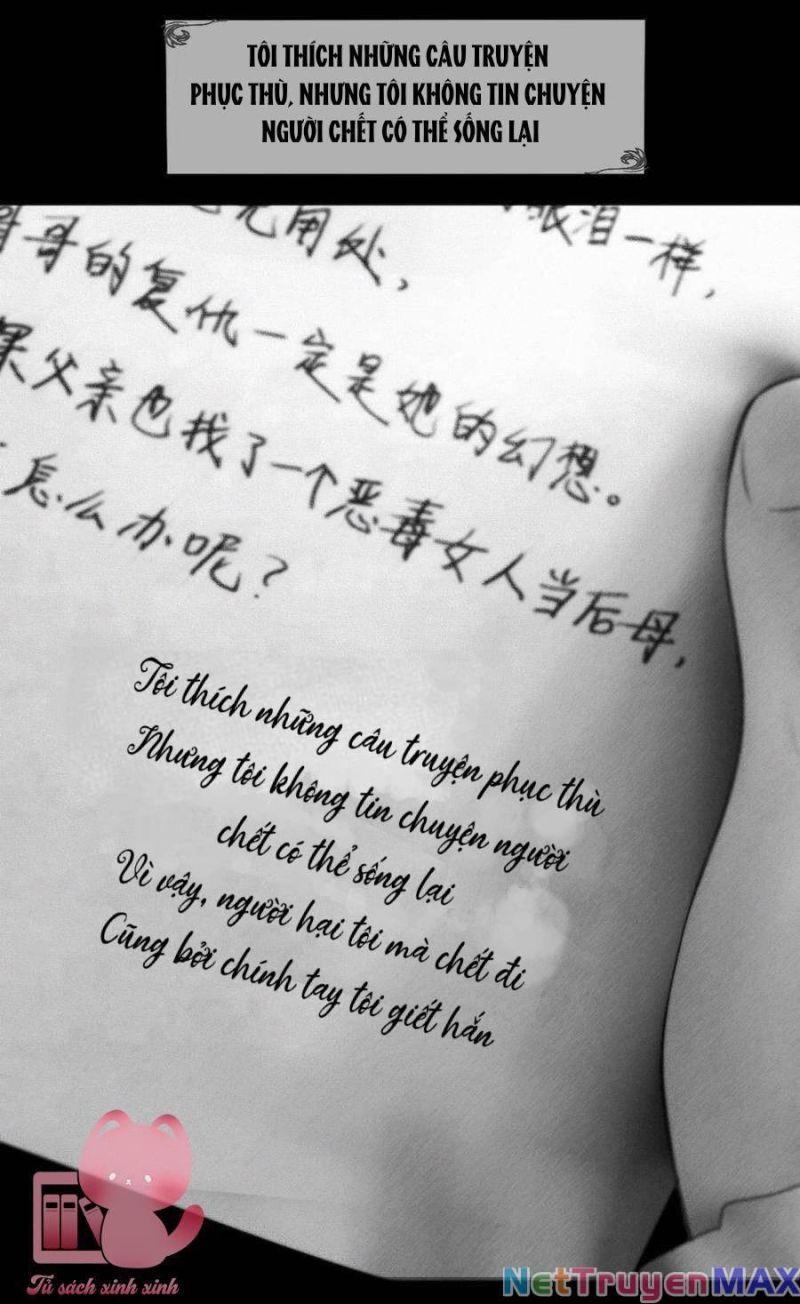 TÔI THÍCH NHỮNG CÂU TRUYỆN
PHỤC THÙ, NHƯNG TÔI KHÔNG TIN CHUYỆN
NGƯỜI CHẾT CÓ THỂ SỐNG LẠI
眼泪一样,
用处,
哥的复仇一定是她的幻想。
果父亲也找了一个恶毒女人当后母,
怎么办呢?
Tôi thích những câu truyện phục thù
Nhưng tôi không tin chuyện người
chết có thể sống lại
Vì vậy, người hại tôi mà chết đi
Cũng bởi chính tay tôi giết hắn
Tủ sách xinh xinh
NETTRUYENMAX